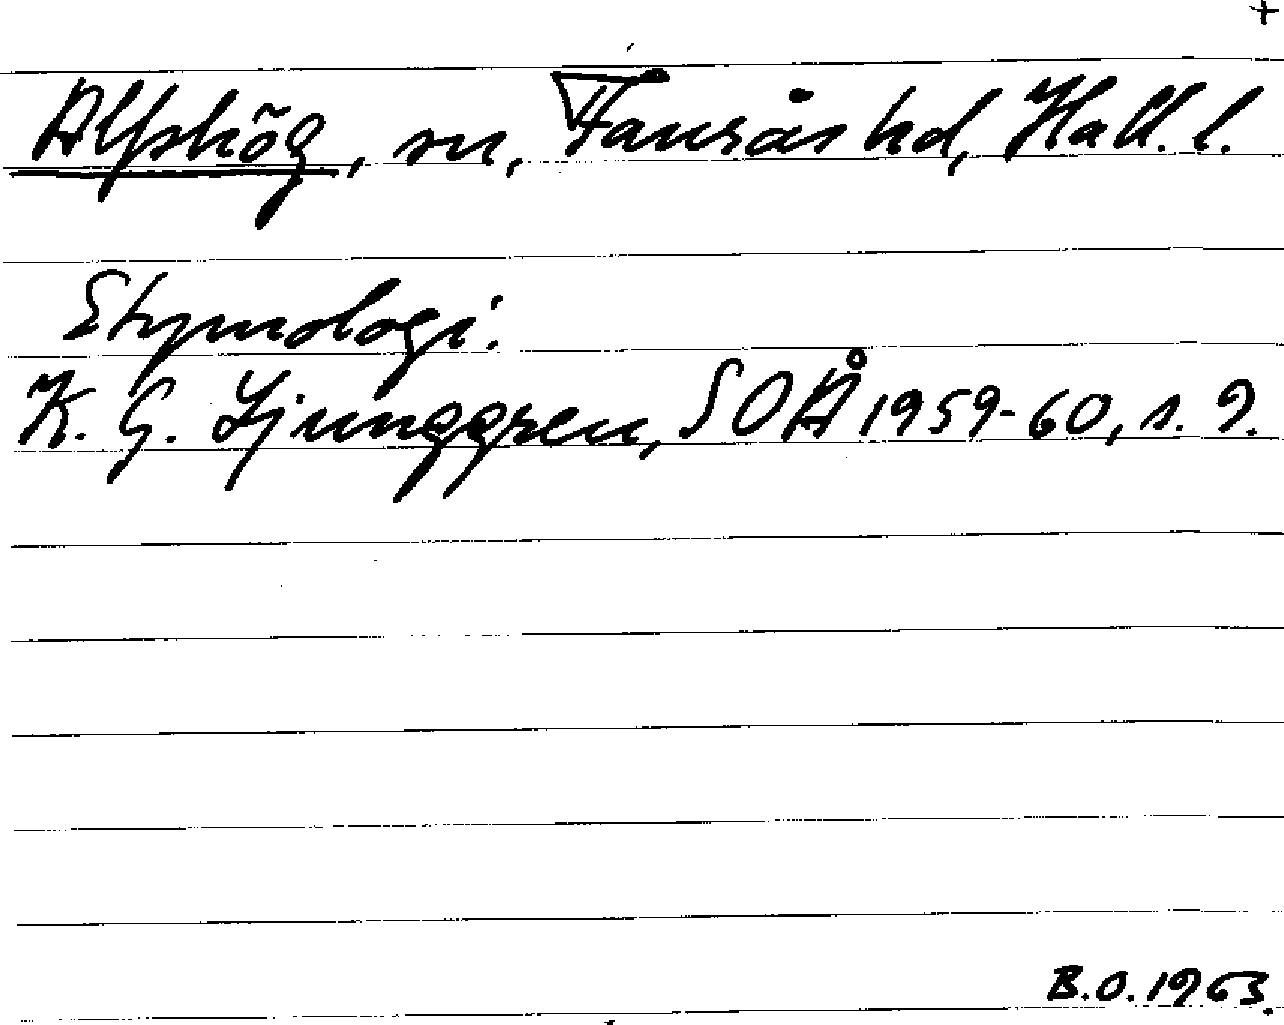 +
Alfshög, sn, Faurås hd, Hall. l.
Etymologi.
K. G. Ljunggren, SOÅ 1959-60, s. 9.
B.O. 1963.